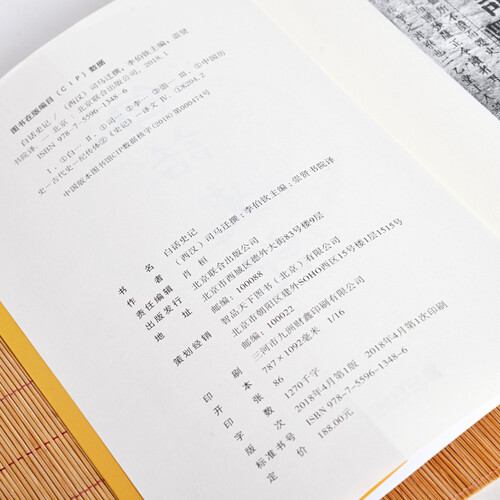 图书在版编目（CIP）数据
白话史记 /（西汉）司马迁撰，李伯钦主编；崇贤
书院译. -- 北京：北京联合出版公司, 2018.1
ISBN 978-7-5596-1348-6
Ⅰ. ①白… Ⅱ. ①司… ②李… ③崇… Ⅲ. ①中国历
史－古代史－纪传体②《史记》－译文 Ⅳ. ①K204.2
中国版本图书馆CIP数据核字(2018)第000474号
书 名 白话史记
作 者 （西汉）司马迁撰；李伯钦主编；崇贤书院译
责任编辑 肖 桓
出版发行 北京联合出版公司
地 址 北京市西城区德外大街83号楼9层
邮编：100088
策划经销 智品天下图书（北京）有限公司
北京市朝阳区建外SOHO西区15号楼1层1515号
邮编：100022
印 刷 三河市九洲财鑫印刷有限公司
开 本 787×1092毫米 1/16
印 张 86
字 数 1270千字
版 次 2018年4月第1版 2018年4月第1次印刷
标准书号 ISBN 978-7-5596-1348-6
定 价 188.00元